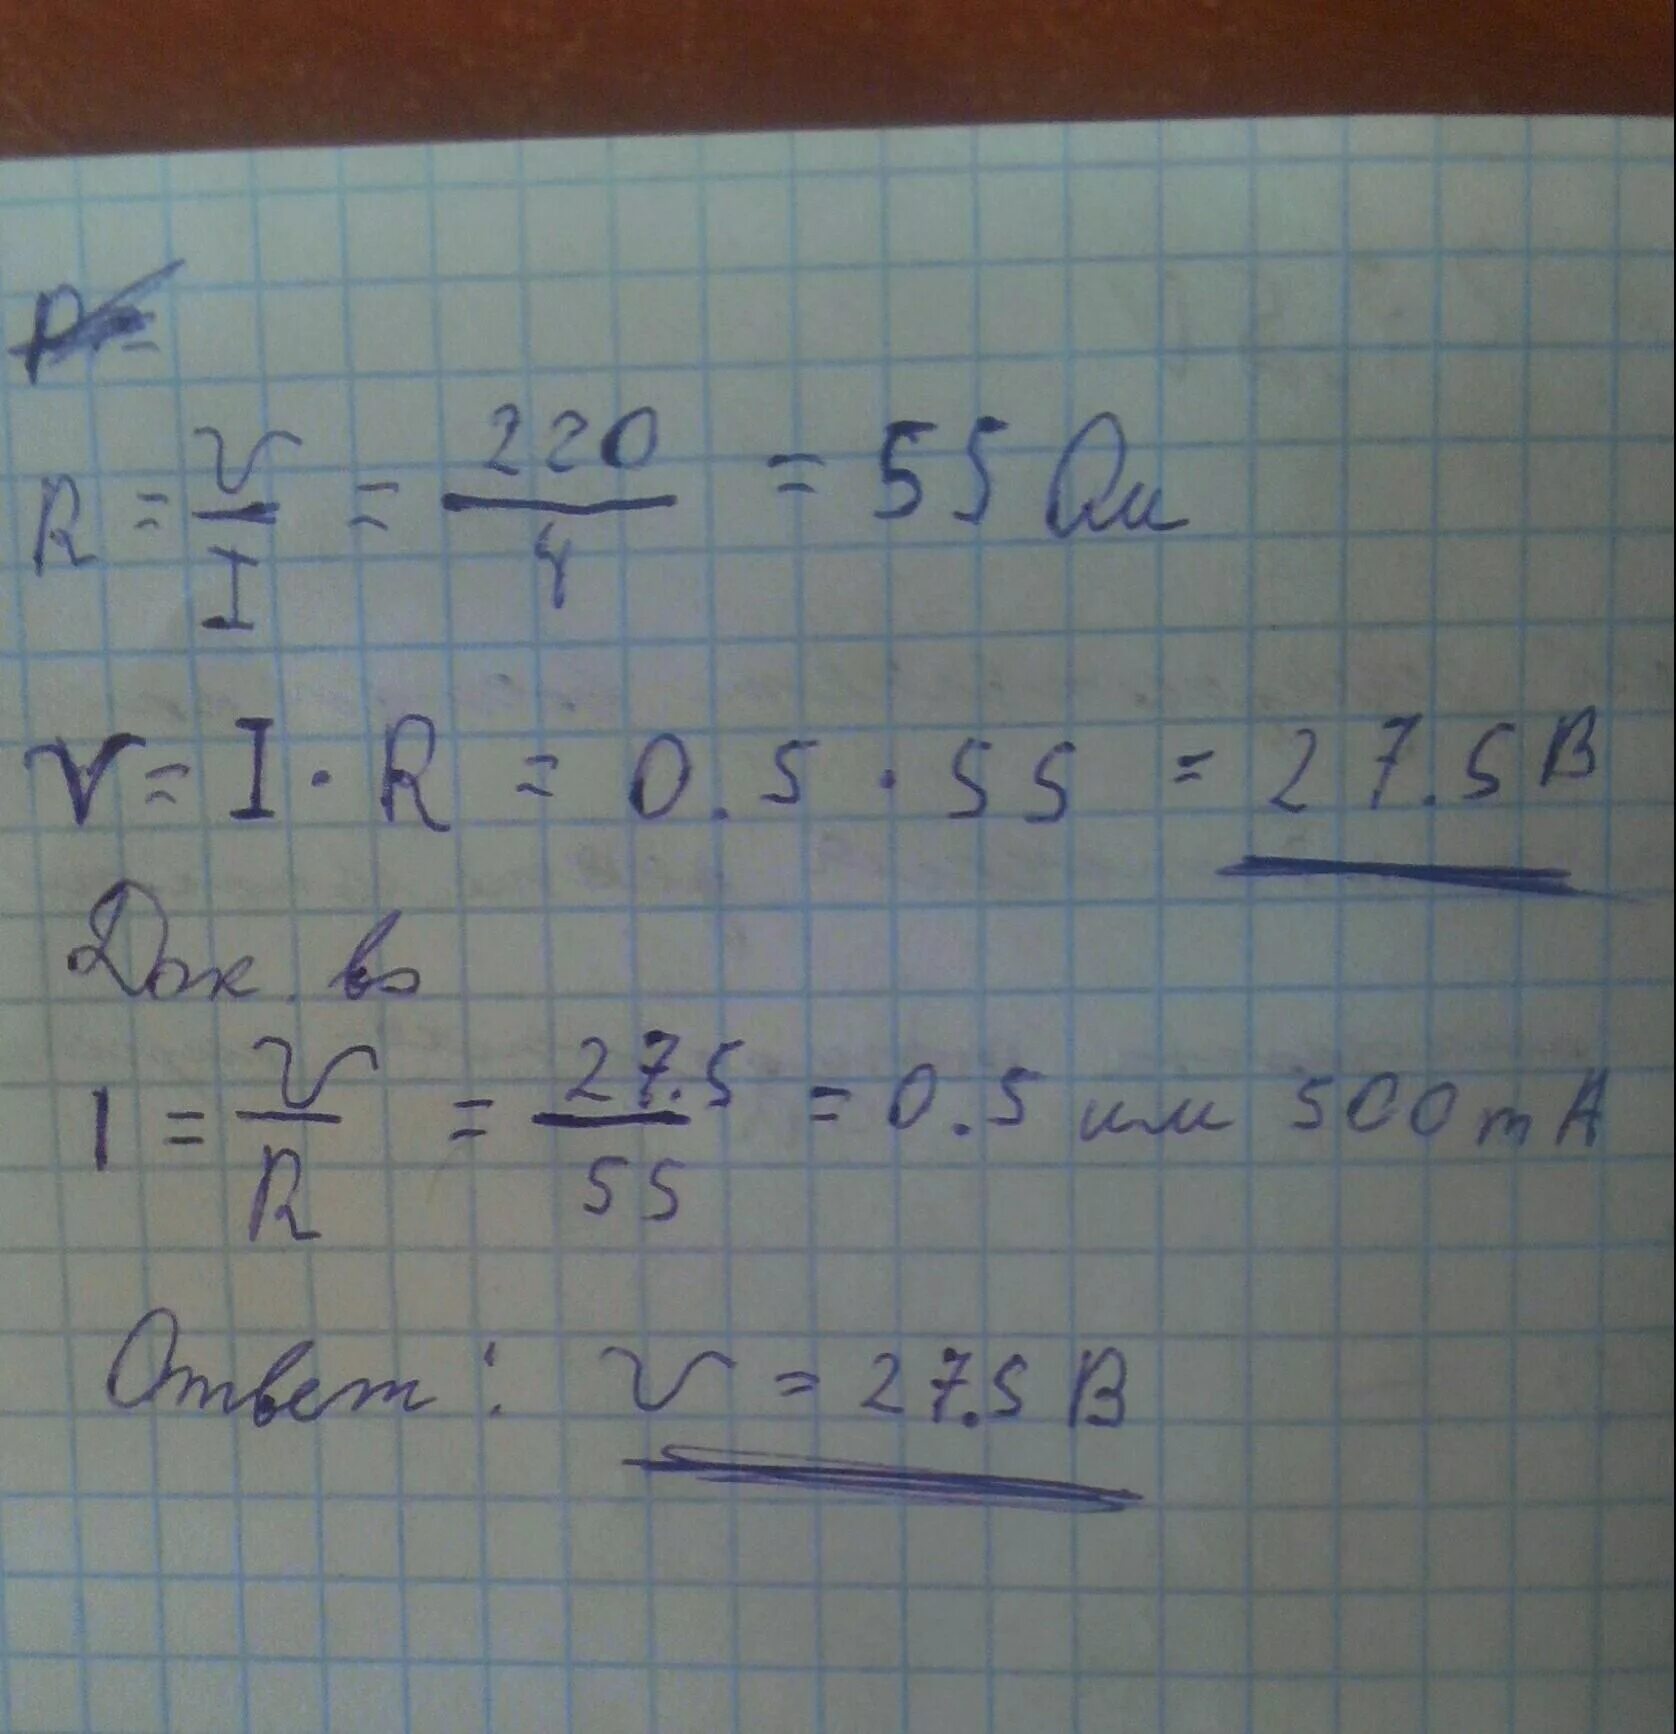 R = U/I = 220/4 = 55 Ом
U = I · R = 0.5 · 55 = 27.5 В
Док. во
I = U/R = 27.5/55 = 0.5 или 500 mA
Ответ: U = 27.5 В